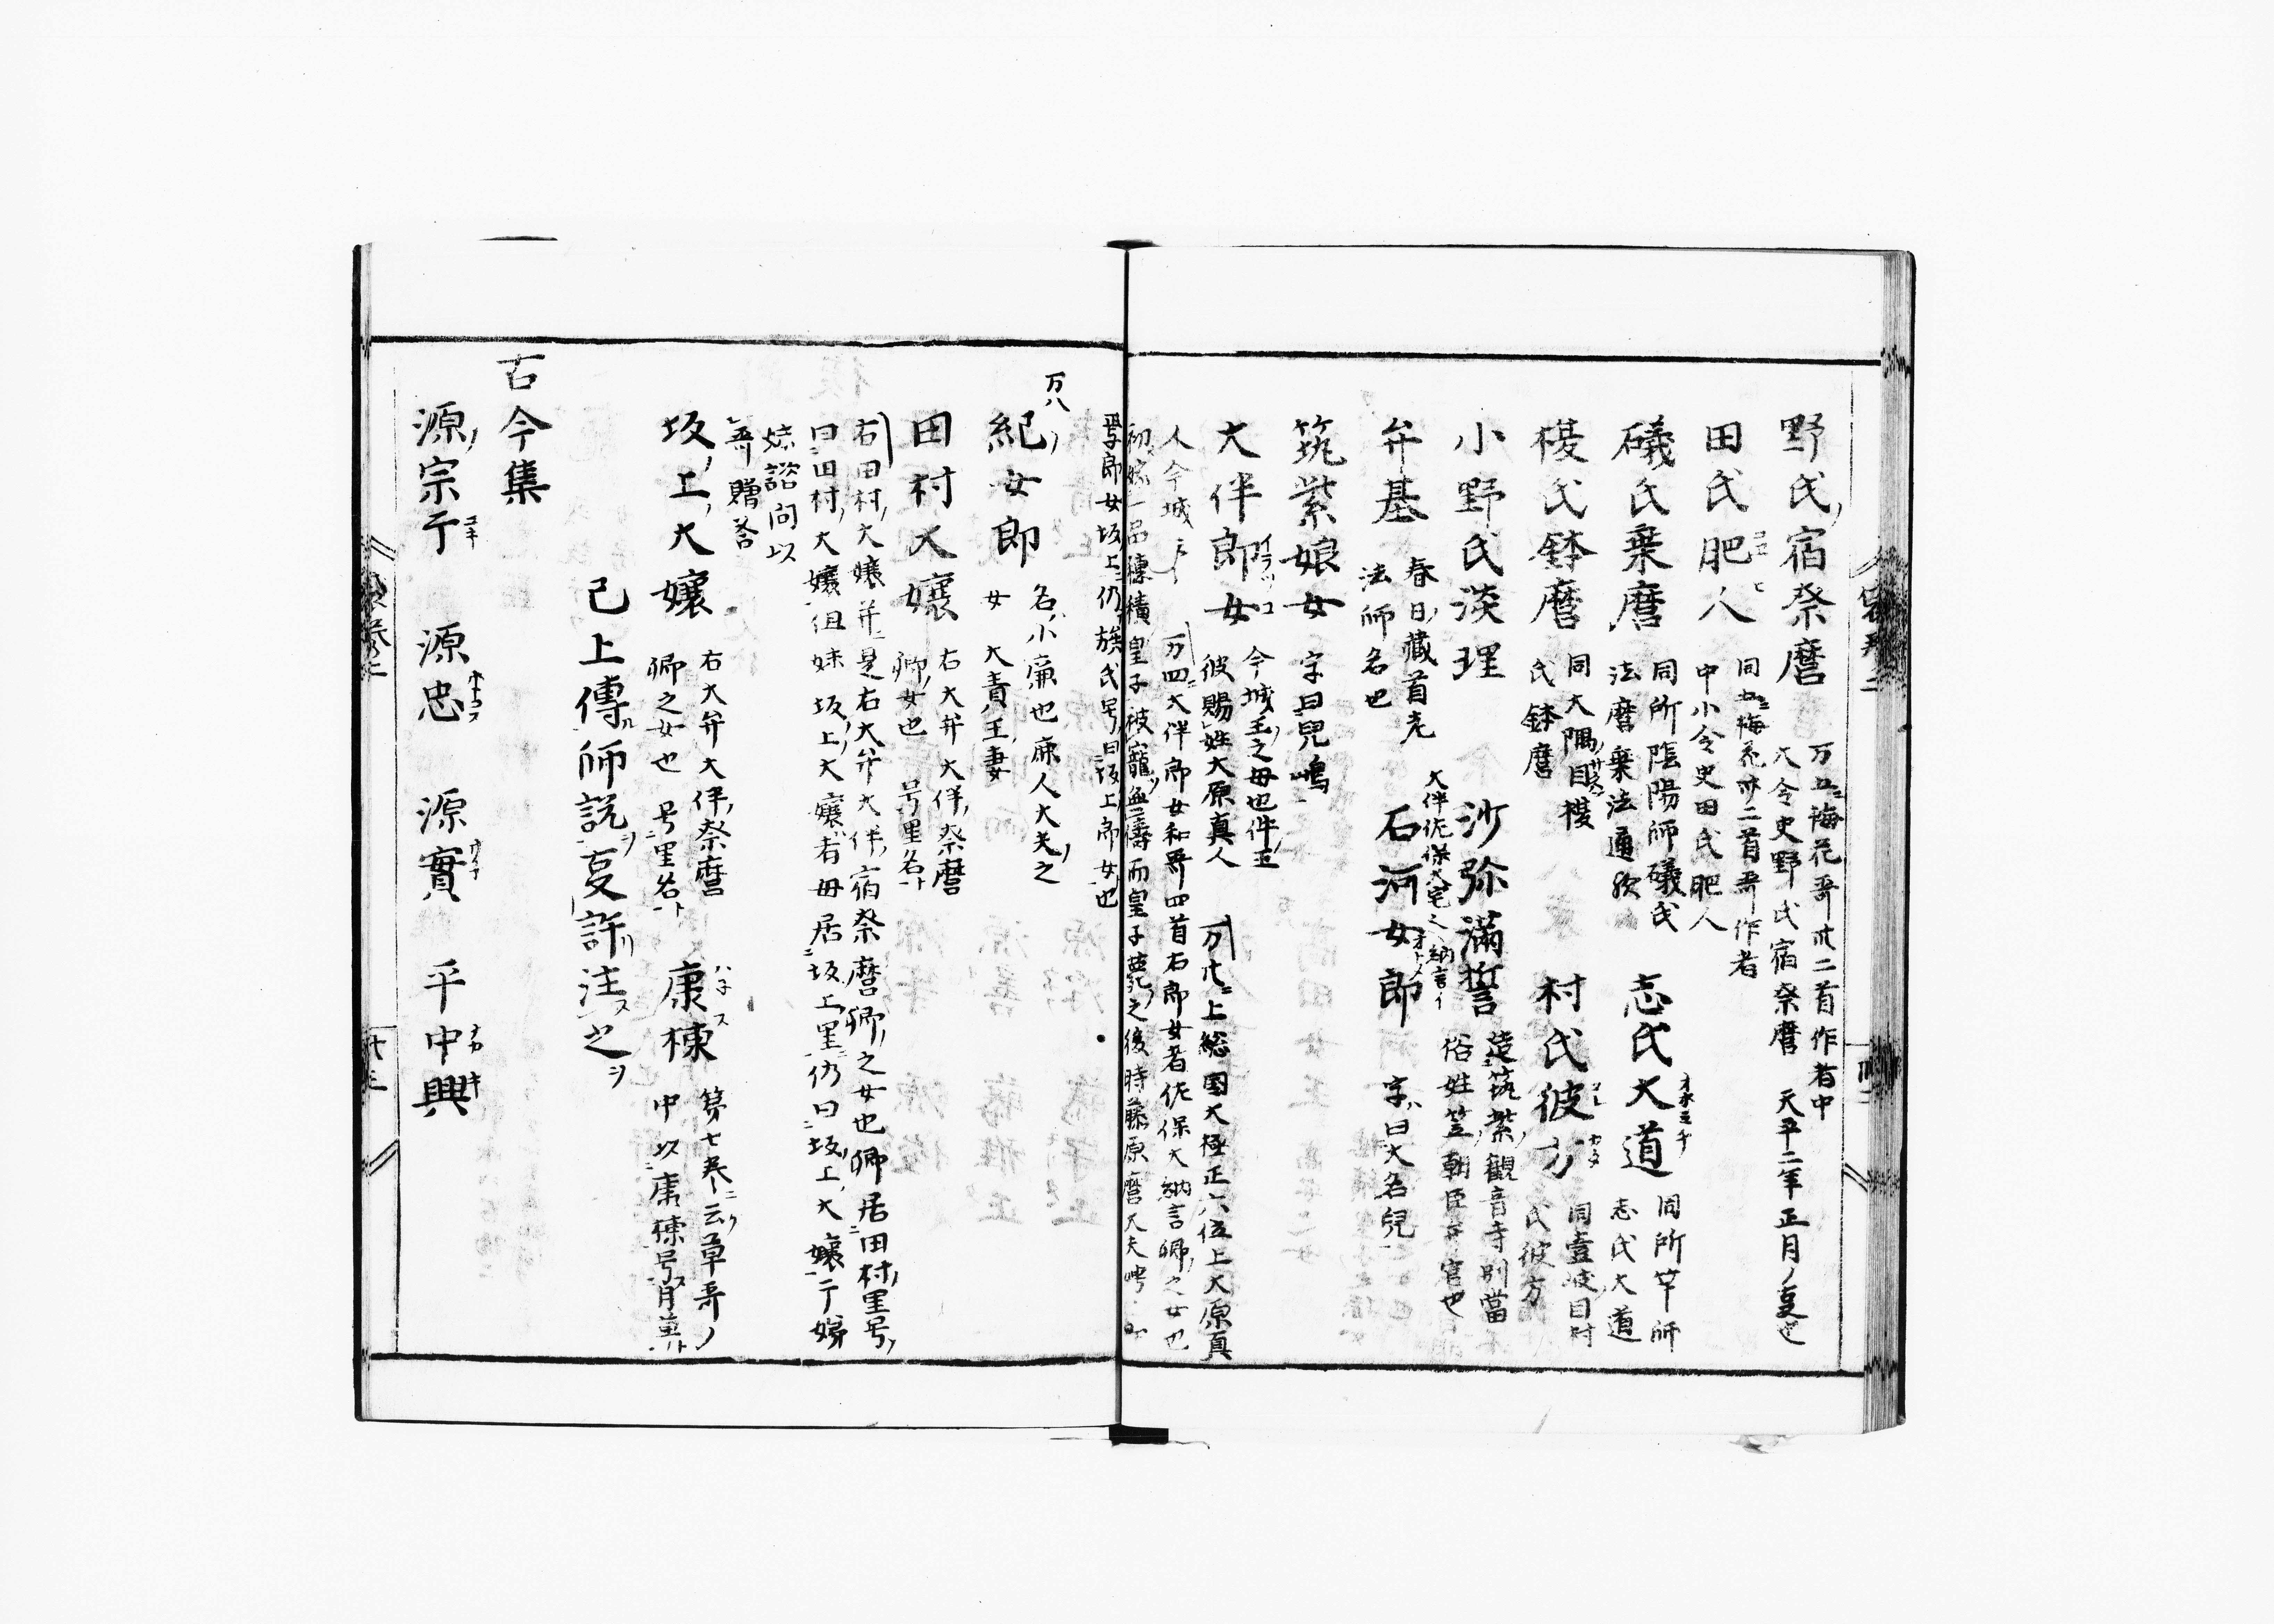 野氏宿祭麿
万五ニ梅花哥廿二首作者中
大令史野氏宿祭麿 天平二年正月ノ夏也
田氏肥人
同五ニ梅花廿二首哥作者
中小令史田氏肥人
礒氏棄麿
同所陰陽師礒氏
法麿棄法通欤
志氏大道
同所竿師
志氏大道
榎氏鉢麿
同大隅目榎
氏鉢麿
村氏彼方
同壹岐目村
氏彼方
小野氏淡理
沙弥滿誓
造筑紫観音寺別當
俗姓笠朝臣
弁基
春日藏首老
法師名也
石河女郎
字曰大名兒
筑紫娘女
字曰兒嶋
大伴郎女
今城王之母也件王
彼賜姓大原真人
万廿ニ上総国大掾正六位上大原真
人今城
万四ニ大伴郎女和哥四首右郎女者佐保大納言卿之女也
初嫁一品穗積皇子被寵無儔而皇子薨之後時藤原麿大夫娉
郎女坂上仍族氏号曰坂上郎女也
万八
紀女郎
名小廉也鹿人大夫之
女 大責王妻
田村大嬢
右大弁大伴祭麿
卿女也 号里名ト
右田村大嬢并是右大弁大伴宿祭麿卿之女也卿居田村里号
曰田村大嬢但妹坂上大嬢者母居坂上里仍曰坂上大嬢于姉
妹諮問以
哥贈答
坂上大嬢
右大弁大伴祭麿
卿之女也 号里名ト
康棟
第七巻ニ云草哥ノ
中以康棟号
已上傳師説夏許注之
古今集
源宗于 源忠 源實 平中興